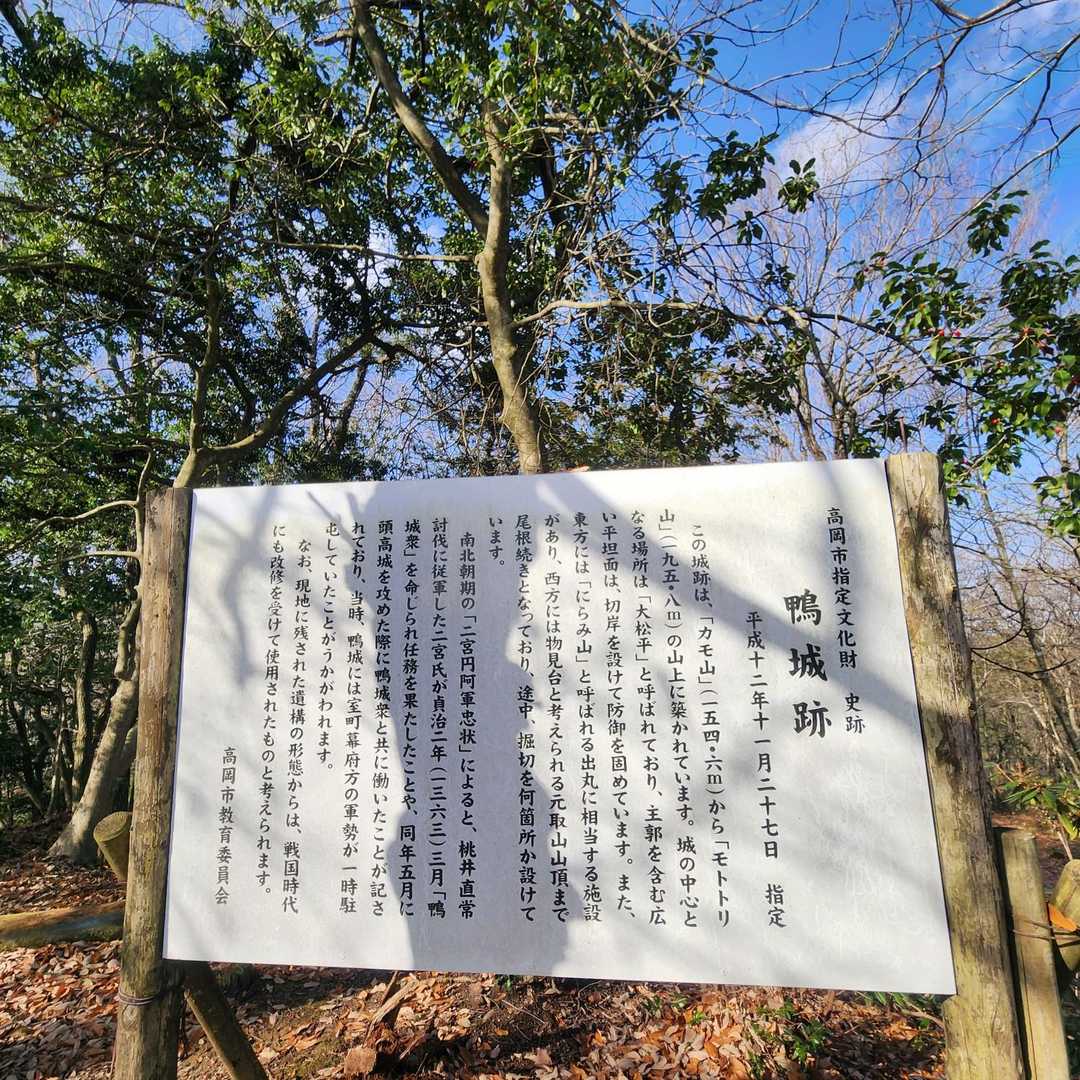 高岡市指定文化財　史跡
鴨城跡
平成十二年十一月二十七日　指定
この城跡は、「カモ山」（一五四・六ｍ）から「モトトリ
山」（一九五・八ｍ）の山上に築かれています。城の中心と
なる場所は「大松平」と呼ばれており、主郭を含む広
い平坦面は、切岸を設けて防御を固めています。また、
東方には「にらみ山」と呼ばれる出丸に相当する施設
があり、西方には物見台と考えられる元取山山頂まで
尾根続きとなっており、途中、掘切を何箇所か設けて
います。
南北朝期の「二宮円阿軍忠状」によると、桃井直常
討伐に従軍した二宮氏が貞治二年（一三六三）三月「鴨
城衆」を命じられ任務を果たしたことや、同年五月に
頭高城を攻めた際に鴨城衆と共に働いたことが記さ
れており、当時、鴨城には室町幕府方の軍勢が一時駐
屯していたことがうかがわれます。
なお、現地に残された遺構の形態からは、戦国時代
にも改修を受けて使用されたものと考えられます。
高岡市教育委員会